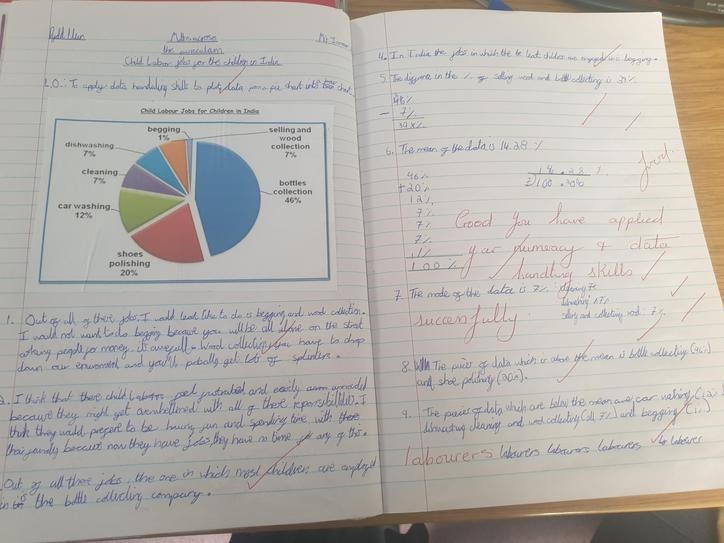 Maths across
the curriculum
Child Labour jobs for the children in India
L.O: To apply data handling skills to plot data pie chart into chart
Child Labour Jobs for Children in India
begging
1%
selling and
wood
collection
7%
dishwashing
7%
cleaning
7%
bottles
collection
46%
car washing
12%
shoes
polishing
20%
1. Out of all of these jobs, I would least like to do is begging and wood collection.
I would not want to do begging because you will be all alone on the street
asking people for money. Wood collecting you have to chop
down our enviroment and you'll get lots of splinters.
2. I think that these child Labourers feel frustrated and easily
because they might get overwhelmed with all of these I
think they would prefer to be having fun and spending time with
their family because now they have jobs they have no time for any of this.
Out of all these jobs, the one in which most children are employed
in is the bottle collecting company.
4. In India the jobs in which the least children are engaged in is begging.
5. The difference in the % of selling wood and bottle collecting is 39%.
46%
- 7%
39%
6. The mean of the data is 14.28 %
46%
+20%
12%
7%
7%
7%
1%
100%
14.28 %
7 100
Good you have applied
your numeracy & data
handling skills
successfully
7. The mode of the data is 7%: cleaning 7%
dishwashing 7%
selling and collecting wood: 7%
8. The pieces of data which is above the mean is bottle collecting (46%)
and shoe polishing (20%).
9. The pieces of data which are below the mean are, car washing (12%)
dishwashing cleaning and wood collecting (all 7%) and begging (1%).
labourers labourers labourers labourers labourer